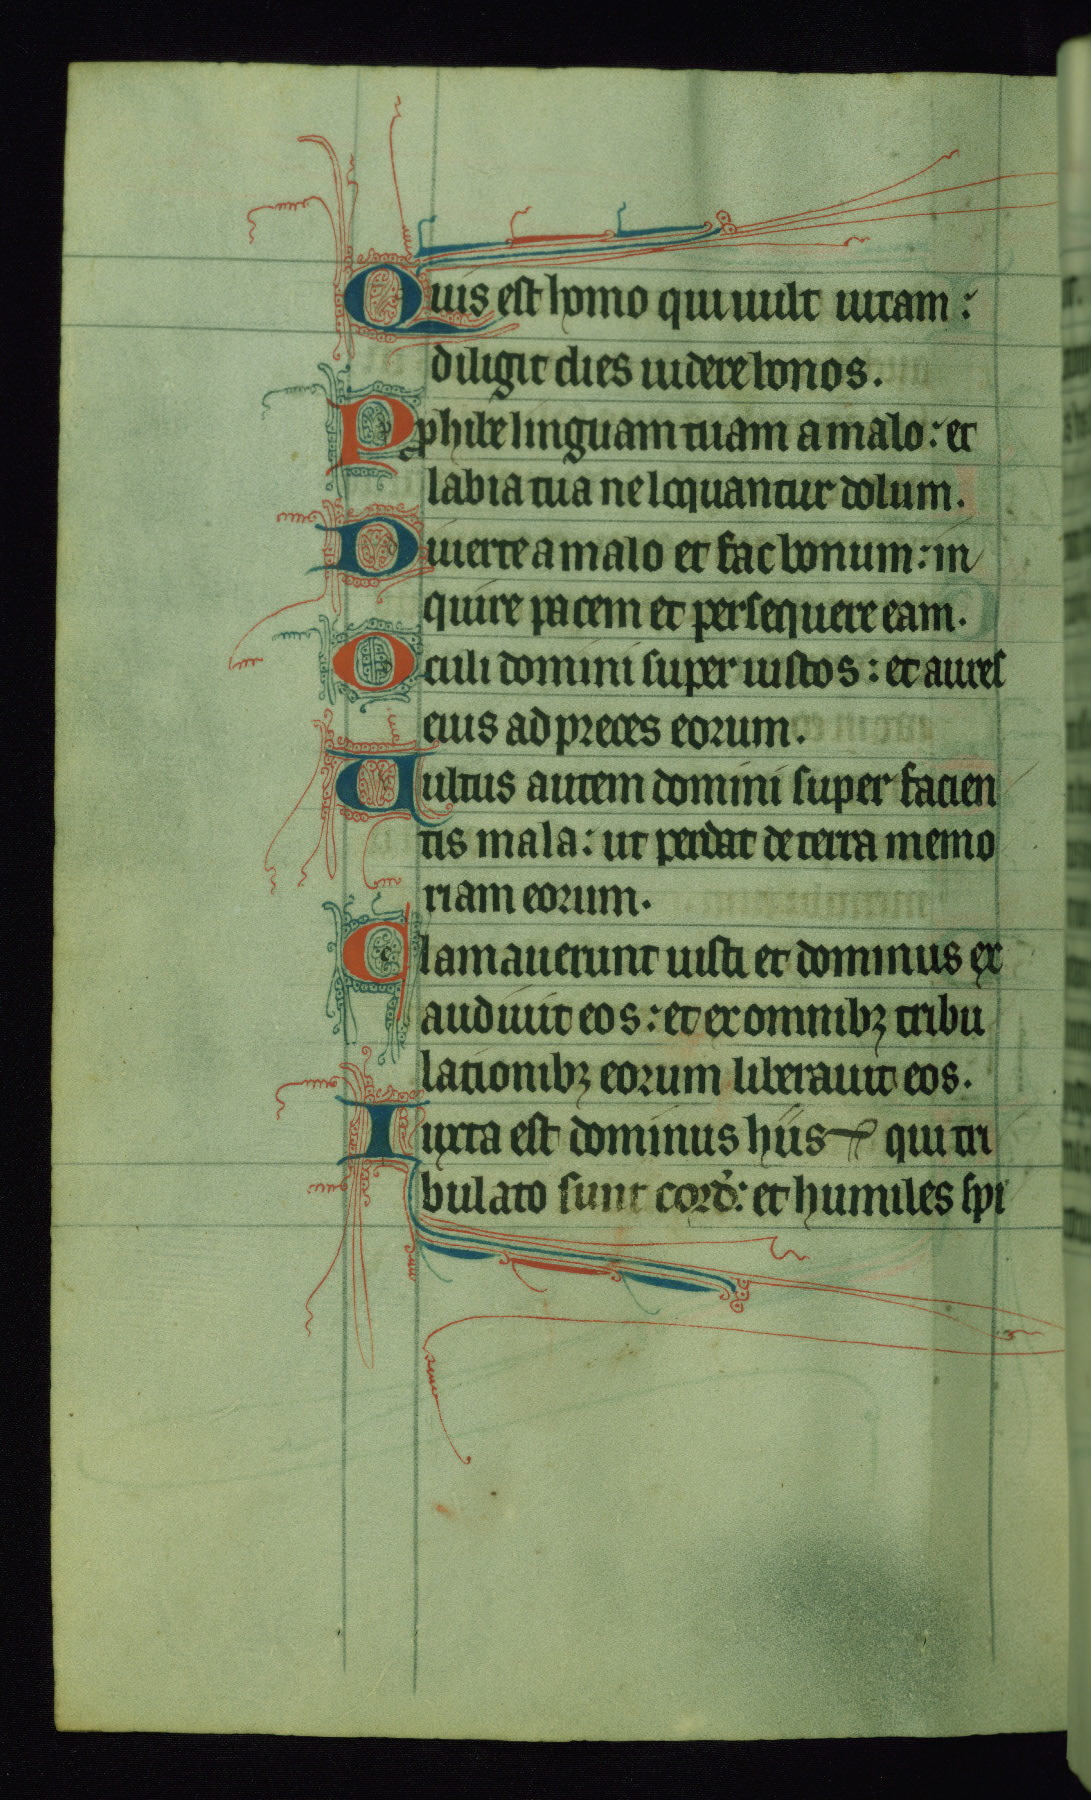 Quis est homo qui uult uitam :
diligit dies uidere bonos.
Prohibe linguam tuam a malo : et
labia tua ne loquantur dolum.
Diuerte a malo et fac bonum : in
quire pacem et persequere eam.
Oculi domini super iustos : et aures
eius ad preces eorum.
Uultus autem domini super facien
tis mala : ut perdat de terra memo
riam eorum.
Clamauerunt iusti et dominus ex
audiuit eos : et ex omnibꝫ tribu
lationibꝫ eorum liberauit eos.
Iuxta est dominus hiis qui tri
bulato sunt cord : et humiles spi